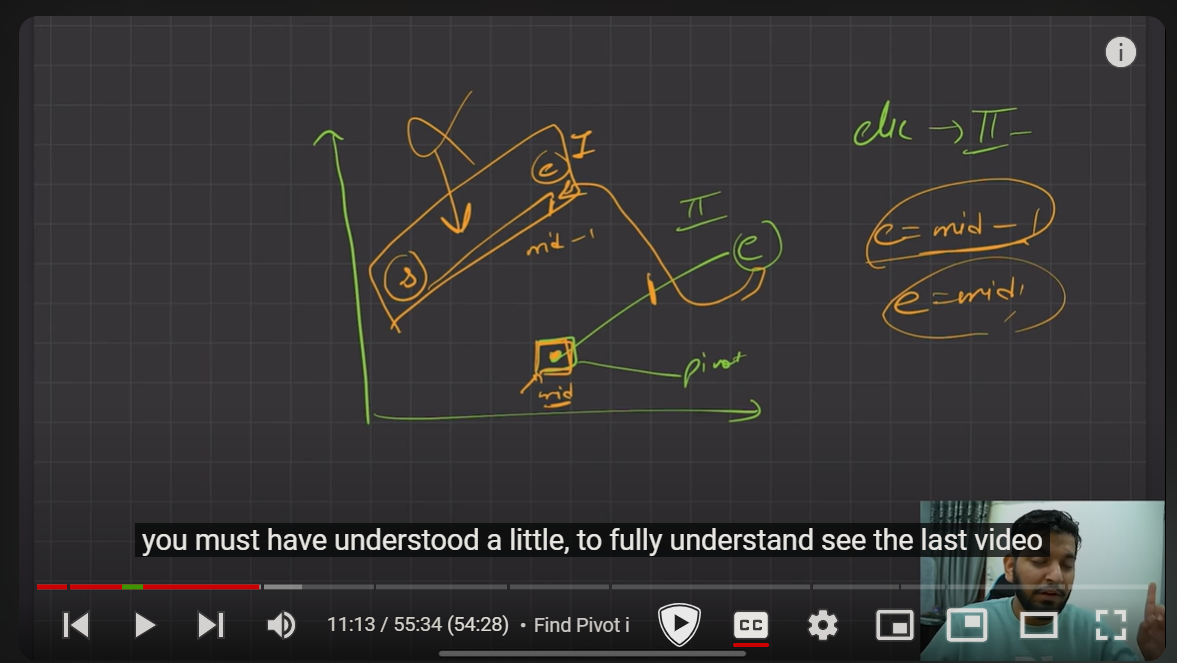 i
I
e
II
s
mid - 1
e
pivot
mid
→ II -
e = mid - 1
e = mid
you must have understood a little, to fully understand see the last video
11:13 / 55:34 (54:28) • Find Pivot i
CC